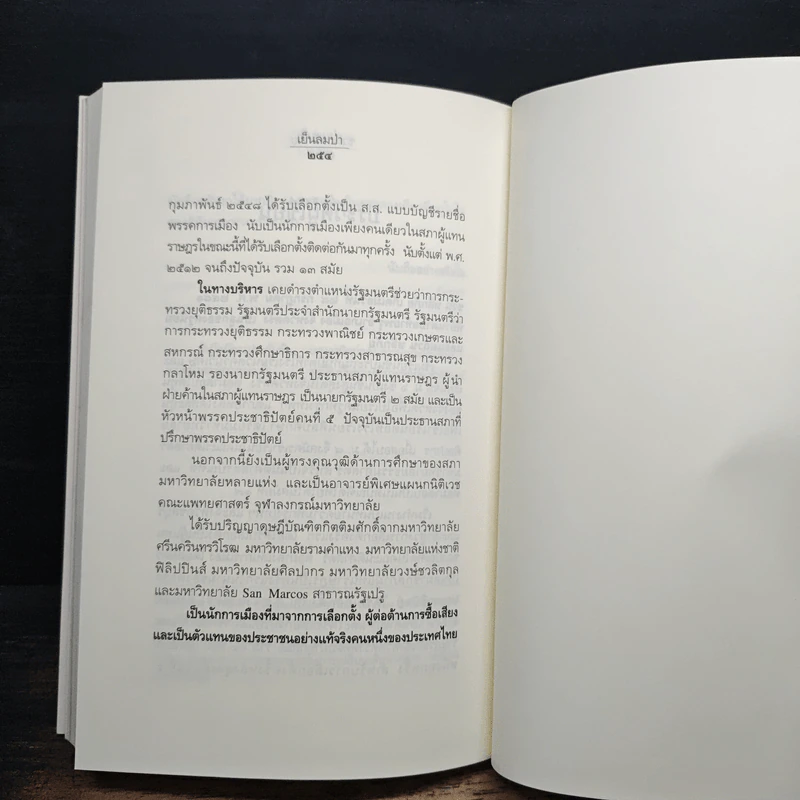 เย็นลมป่า
๒๕๔
กุมภาพันธ์ ๒๕๔๘ ได้รับเลือกตั้งเป็น ส.ส. แบบบัญชีรายชื่อ
พรรคการเมือง นับเป็นนักการเมืองเพียงคนเดียวในสภาผู้แทน
ราษฎรในขณะนี้ที่ได้รับเลือกตั้งติดต่อกันมาทุกครั้ง นับตั้งแต่ พ.ศ.
๒๕๑๒ จนถึงปัจจุบัน รวม ๑๓ สมัย
ในทางบริหาร เคยดำรงตำแหน่งรัฐมนตรีช่วยว่าการกระ-
ทรวงยุติธรรม รัฐมนตรีประจำสำนักนายกรัฐมนตรี รัฐมนตรีว่า
การกระทรวงยุติธรรม กระทรวงพาณิชย์ กระทรวงเกษตรและ
สหกรณ์ กระทรวงศึกษาธิการ กระทรวงสาธารณสุข กระทรวง
กลาโหม รองนายกรัฐมนตรี ประธานสภาผู้แทนราษฎร ผู้นำ
ฝ่ายค้านในสภาผู้แทนราษฎร เป็นนายกรัฐมนตรี ๒ สมัย และเป็น
หัวหน้าพรรคประชาธิปัตย์คนที่ ๕ ปัจจุบันเป็นประธานสภาที่
ปรึกษาพรรคประชาธิปัตย์
นอกจากนี้ยังเป็นผู้ทรงคุณวุฒิด้านการศึกษาของสภา
มหาวิทยาลัยหลายแห่ง และเป็นอาจารย์พิเศษแผนกนิติเวช
คณะแพทยศาสตร์ จุฬาลงกรณ์มหาวิทยาลัย
ได้รับปริญญาดุษฎีบัณฑิตกิตติมศักดิ์จากมหาวิทยาลัย
ศรีนครินทรวิโรฒ มหาวิทยาลัยรามคำแหง มหาวิทยาลัยแห่งชาติ
ฟิลิปปินส์ มหาวิทยาลัยศิลปากร มหาวิทยาลัยวงษ์ชวลิตกุล
และมหาวิทยาลัย San Marcos สาธารณรัฐเปรู
เป็นนักการเมืองที่มาจากการเลือกตั้ง ผู้ต่อต้านการซื้อเสียง
และเป็นตัวแทนของประชาชนอย่างแท้จริงคนหนึ่งของประเทศไทย